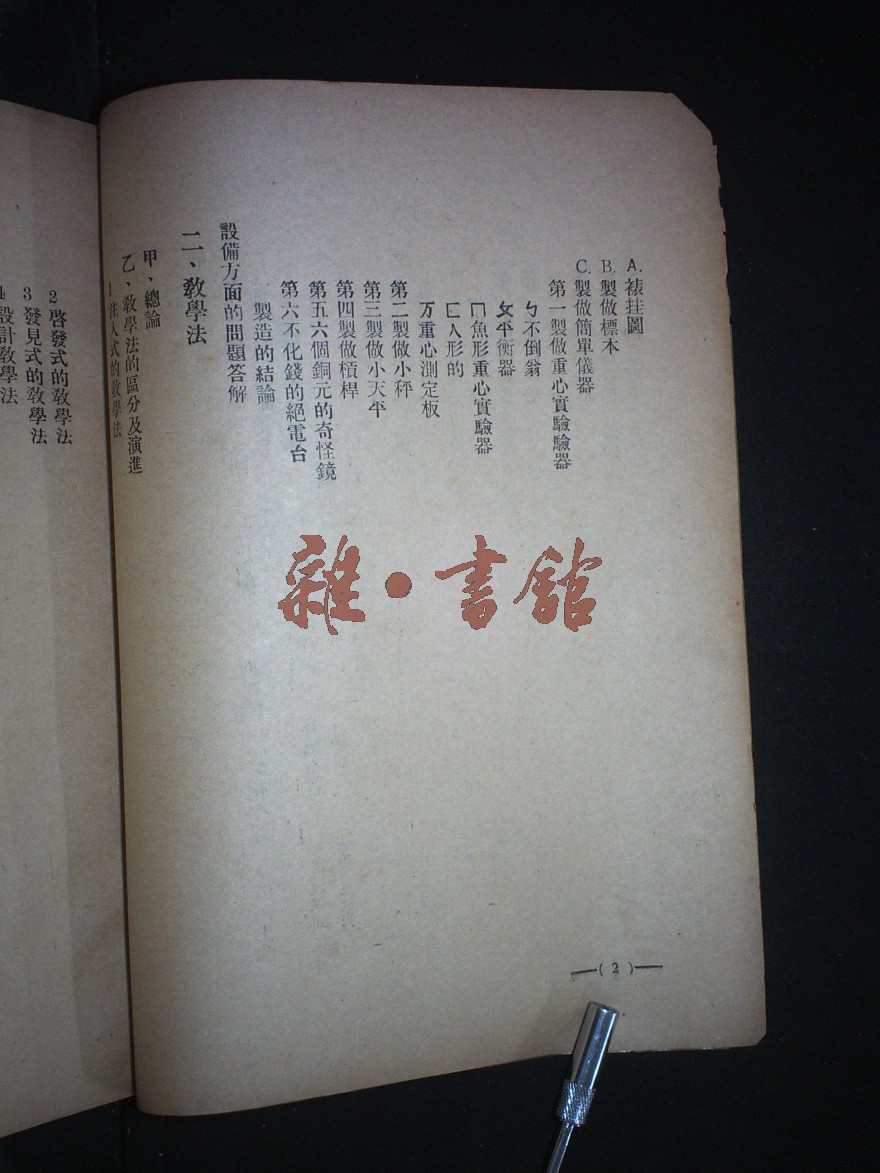 A. 裱挂圖
B. 製做標本
C. 製做簡單儀器
第一製做重心實驗驗器
ㄅ不倒翁
ㄆ平衡器
ㄇ魚形重心實驗器
ㄈ人形的
万重心測定板
第二製做小秤
第三製做小天平
第四製做槓桿
第五六個銅元的奇怪鏡
第六不化錢的絕電台
製造的結論
設備方面的問題答解
二、敎學法
甲、總論
乙、敎學法的區分及演進
1 注入式的敎學法
2 啓發式的敎學法
3 發見式的敎學法
4 設計敎學法
—(2)—
雜·書館